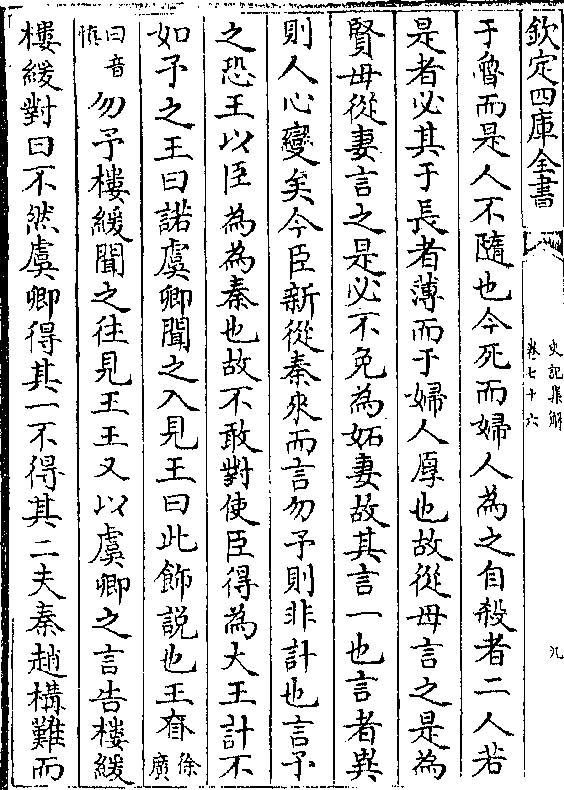 欽定四庫全書
史記集解
卷七十六
九
于魯而是人不隨也今死而婦人為之自殺者二人若
是者必其于長者薄而于婦人厚也故從母言之是為
賢母從妻言之是必不免為妬妻故其言一也言者異
則人心變矣今臣新從秦來而言勿予則非計也言予
之恐王以臣為為秦也故不敢對使臣得為大王計不
如予之王曰諾虞卿聞之入見王曰此飾説也王眘徐廣
曰音慎勿予樓緩聞之往見王王又以虞卿之言告樓緩
樓緩對曰不然虞卿得其一不得其二夫秦趙構難而